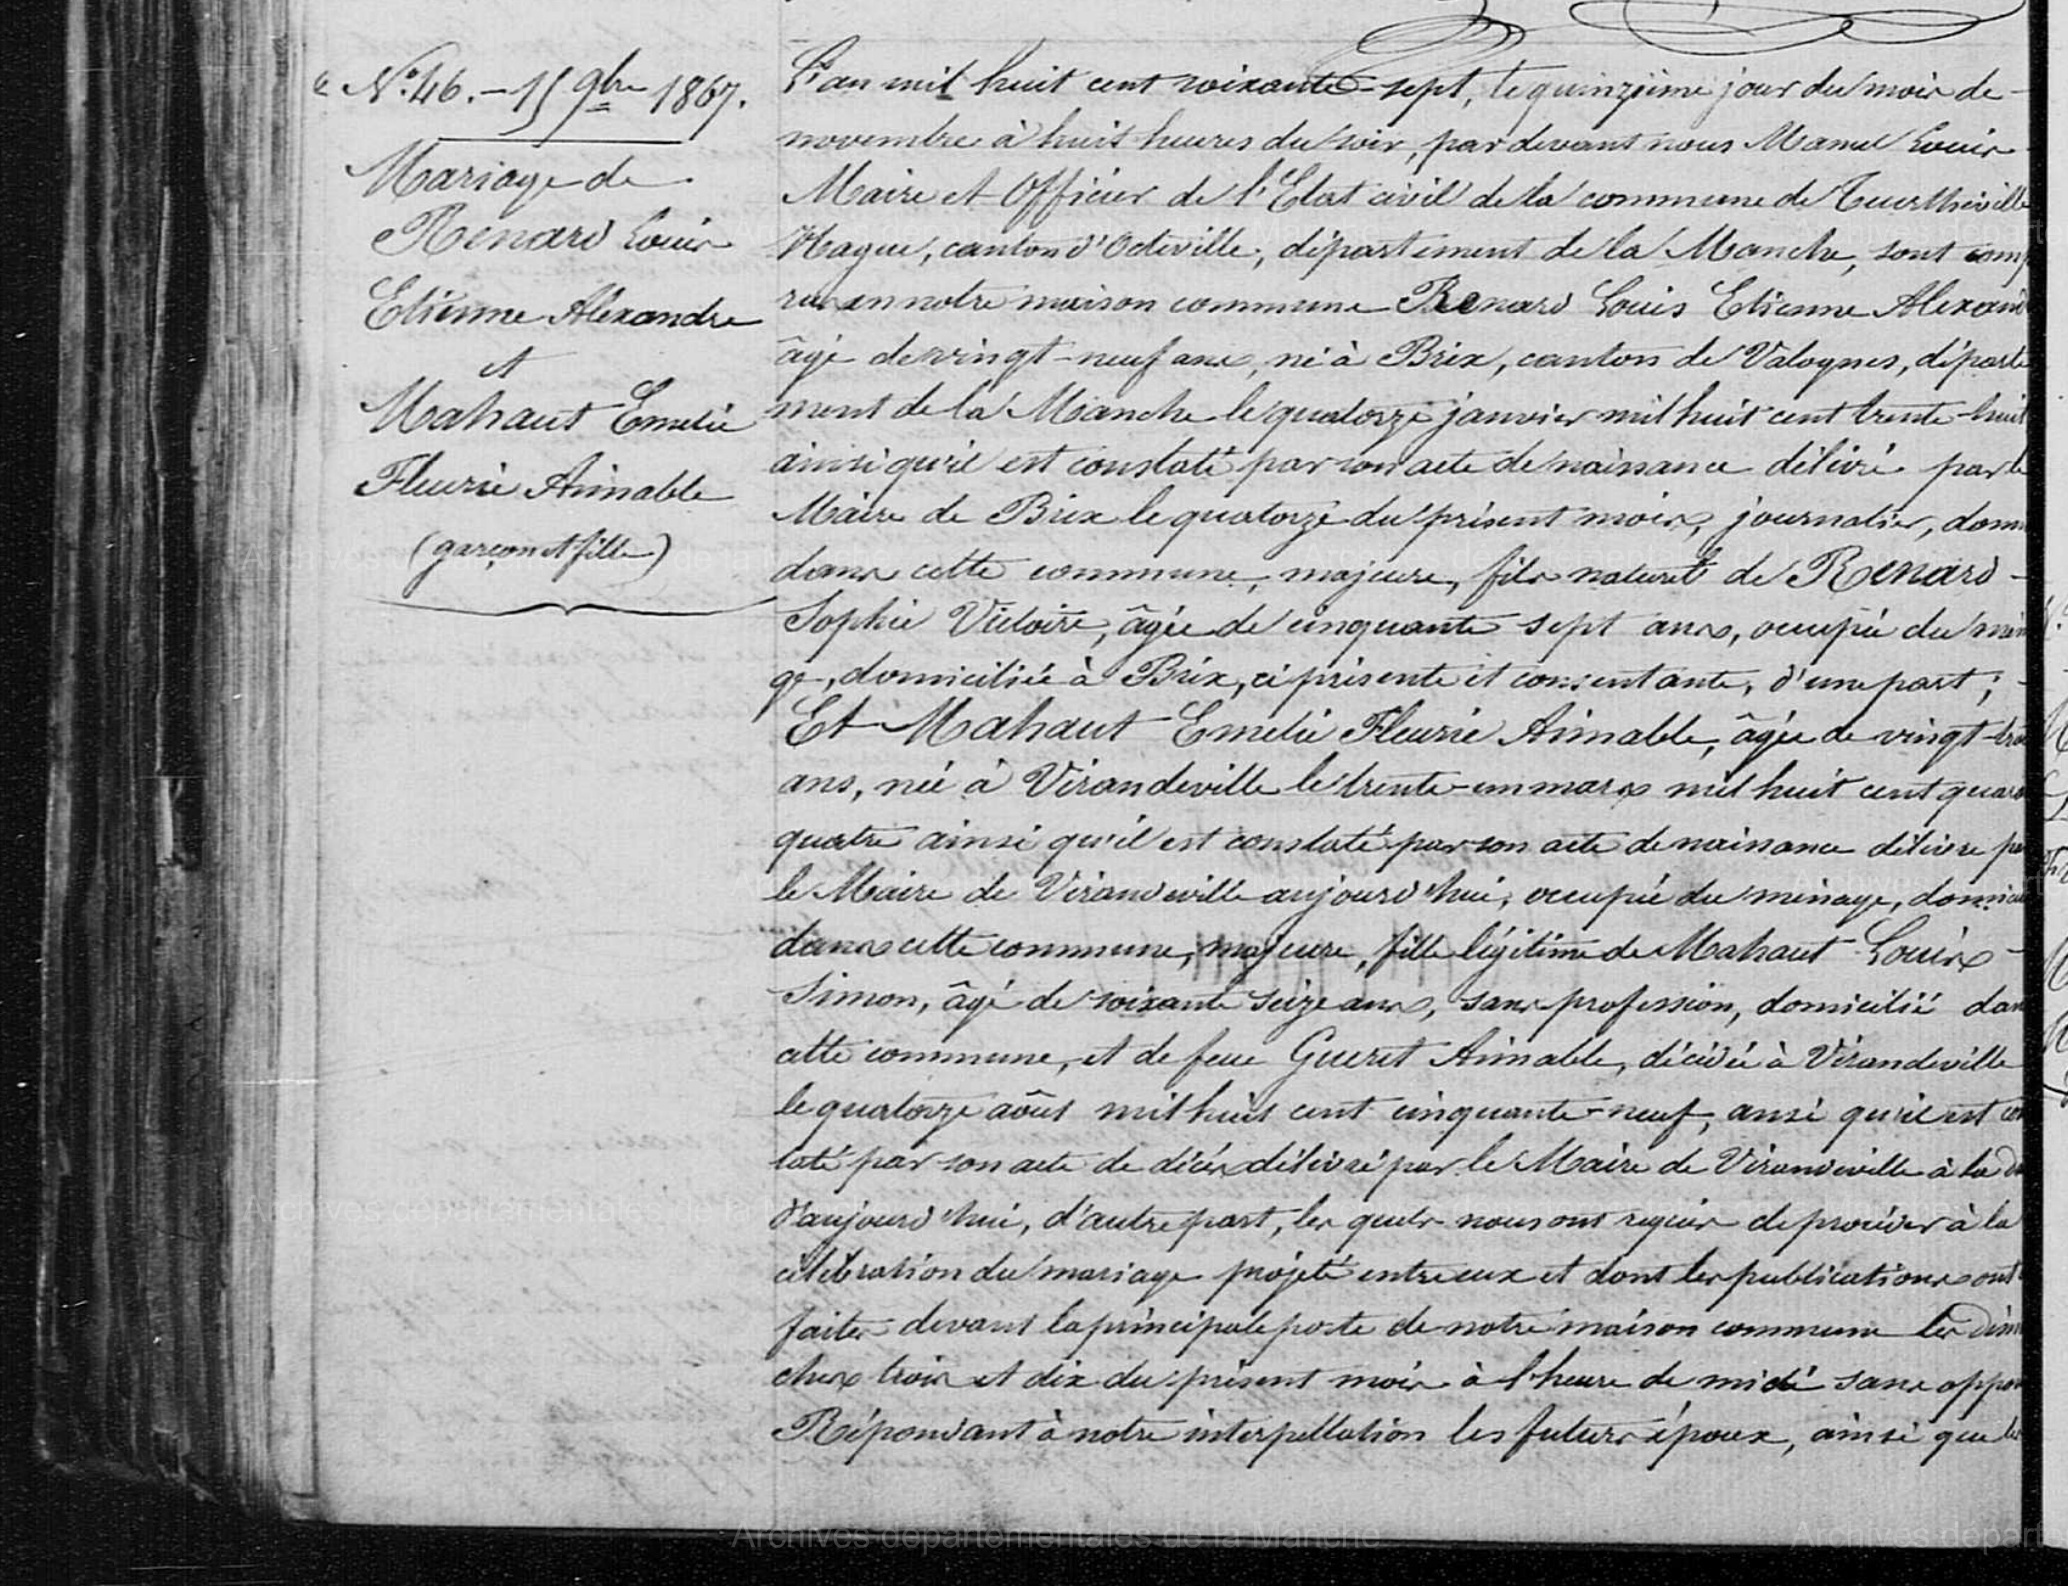 N° 46. – 15 9bre 1867.
Mariage de
Renard Louis
Etienne Alexandre
et
Mahaut Emelie
Fleurie Aimable
(garçon et fille)
L'an mil huit cent soixante-sept, le quinzième jour du mois de
novembre à huit heures du soir, par devant nous Louis
Maire et Officier de l'Etat civil de la commune de Teurthéville
Hague, canton d'Octeville, département de la Manche, sont comp
rus en notre maison commune Renard Louis Etienne Alexand
âgé de vingt-neuf ans, né à Brix, canton de Valognes, départe
ment de la Manche le quatorze janvier mil huit cent trente-huit
ainsi qu'il est constaté par son acte de naissance délivré par le
Maire de Brix le quatorze du présent mois, journalier, domi
dans cette commune, majeure, fils naturel de Renard
Sophie Victoire, âgée de cinquante sept ans, occupée du mén
ge, domiciliée à Brix, ci présente et consentante, d'une part ;
Et Mahaut Emelie Fleurie Aimable, âgée de vingt-tro
ans, née à Virandeville le trente-un mars mil huit cent quara
quatre ainsi qu'il est constaté par son acte de naissance délivré pa
le Maire de Virandeville aujourd'hui, occupée du ménage, domici
dans cette commune, majeure, fille légitime de Mahaut Louis
Simon, âgé de soixante seize ans, sans profession, domicilié dan
cette commune, et de feue Gueret Aimable, décédée à Virandeville
le quatorze août mil huit cent cinquante-neuf, ansi qu'il est con
taté par son acte de décès délivré par le Maire de Virandeville à la d
d'aujourd'hui, d'autre part, les quels nous ont requis de procéder à la
célébration du mariage projeté entre eux et dont les publications ont
faites devant la principale porte de notre maison commune les dim
ches trois et dix du présent mois à l'heure de midi sans oppo
Répondant à notre interpellation les futurs époux, ainsi que le
Archives départementales de la Manche